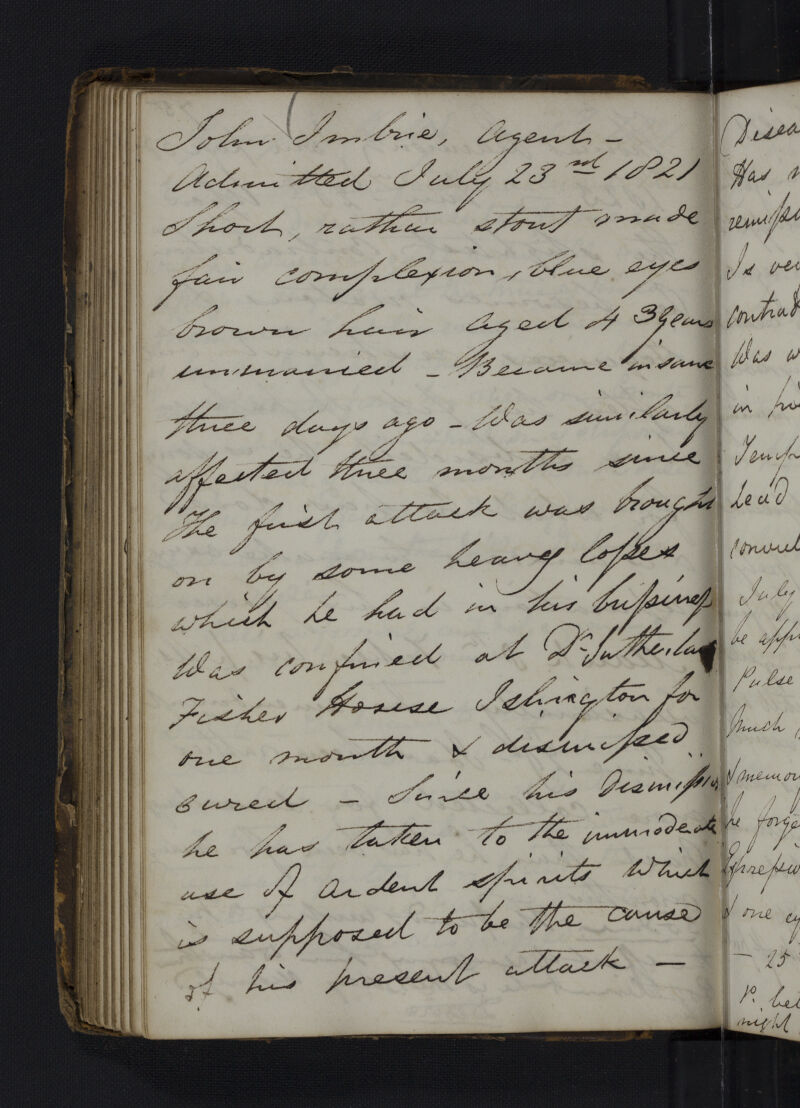 John Imbrie, Agent –
Admitted July 23rd 1821
Short, rather stout made
fair complexion, blue eyes
brown hair aged 43 years
unmarried – Became insane
three days ago – Was similarly
affected three months since
The first attack was brought
on by some heavy losses
which he had in his bussiness
Was confined at Dr Sutherland
Fisher House Islington for
one month & dismissed
cured – Since his Dismission
he has taken to the immoderate
use of ardent spirits which
is supposed to be the cause
of his present attack –
Disea
Has
remiss
Is ver
contrad
Was w
in his
Temp
Lead
convul
July
be app
Pulse
Much
& memor
he forge
Expressio
& one ey
– 25
night